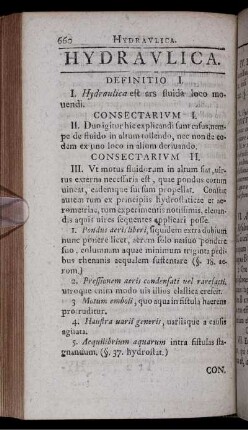 660 HYDRAVLICA.
HYDRAVLICA.
DEFINITIO I.
I. Hydraulica est ars fluida loco mo-
uendi.
CONSECTARIVM I.
II. Duo igitur hic explicandi sunt casus, nem-
pe de fluido in altum tollendo, nec non de eo-
dem ex uno loco in alium deriuando.
CONSECTARIVM II.
III. Vt motus fluidorum in altum fiat, vir-
tus externa necessaria est, quae pondus eorum
vincat, eademque sursum propellat. Constat
autem tum ex principiis hydrostaticae et ae-
rometriae, tum experimentis notissimis, eleuan-
dis aquis vires sequentes applicari posse.
1. Pondus aeris liberi, siquidem extra dubium
nunc ponere licet, aerem solo natiuo pondere
suo, columnam aquae minimum triginta pedi-
bus rhenanis aequalem sustentare (§. 18. ae-
rom.)
2. Pressionem aeris condensati vel rarefacti,
utroque enim modo vis illius elastica crescit.
3 Motum emboli, quo aqua in fistula haerens
pro ruditur.
4. Haustra uarii generis, uariisque a causis
agitata.
5. Aequilibrium aquarum intra fistulas sta-
gnantium. (§. 37. hydrostat.)
CON.